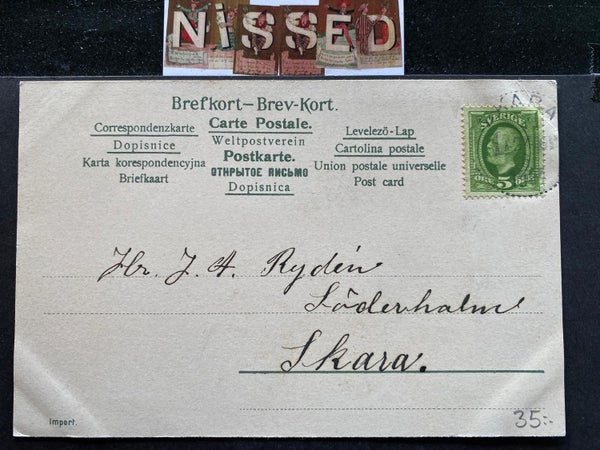 NiSSED
Brefkort—Brev-Kort.
Correspondenzkarte
Carte Postale.
Levelező-Lap
Dopisnice
Weltpostverein
Cartolina postale
Karta korespondencyjna
Postkarte.
Union postale universelle
Briefkaart
ОТКРЫТОЕ ПИСЬМО
Post card
Dopisnica
SVERIGE
5
ÖRE
Hr. J. A. Rydén
Söderholm
Skara.
Import.
35:-